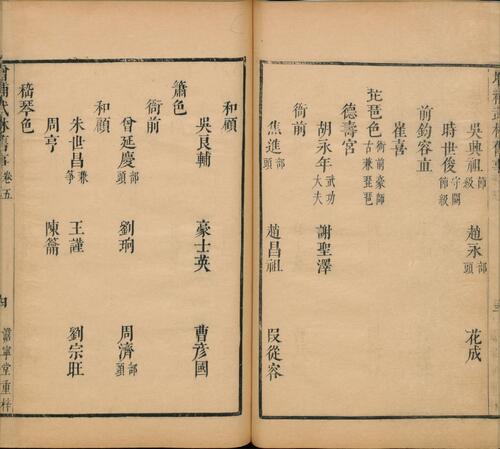 吳興祖節級 趙永部頭 花成
時世俊守闕節級
前鈞容直
崔喜
琵琶色衙前豪師古兼琵琶
德壽宮
胡永年武功大夫 謝聖澤
衙前
焦進部頭 趙昌祖 段從容
和顧
吳良輔 豪士英 曹彥國
簫色
衙前
曾延慶部頭 劉珦 周濟部頭
和顧
朱世昌兼箏 王謹 劉宗旺
周亨 陳籥
嵇琴色
增補武林舊事 卷五 澹寧堂重梓